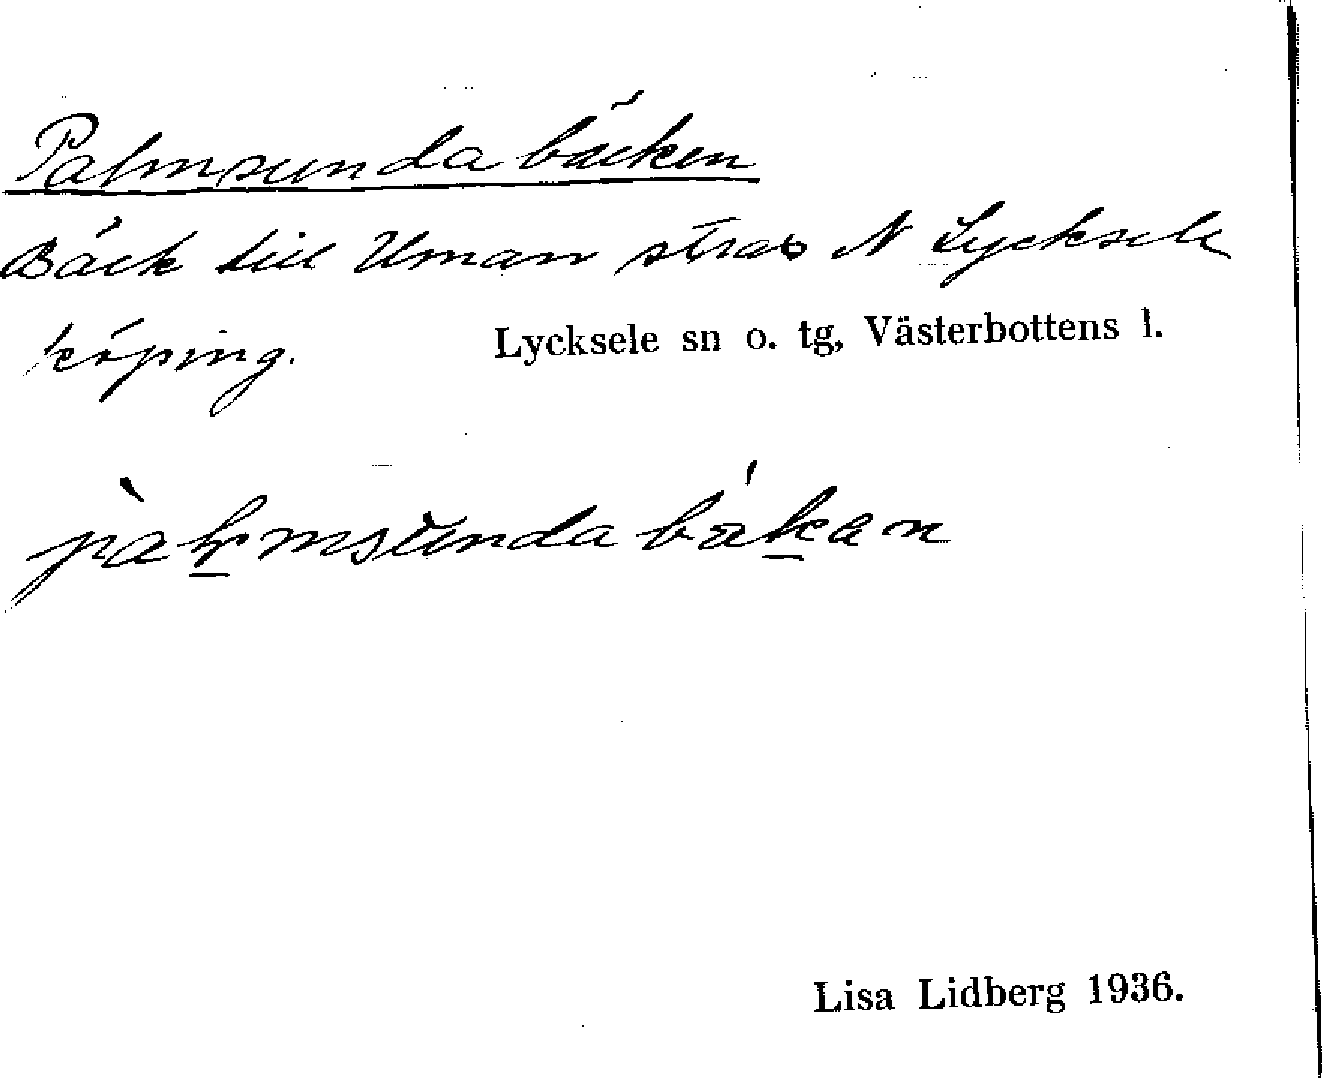 Palmsundabäcken
Bäck till Uman strax N Lycksele
köping.
Lycksele sn o. tg, Västerbottens l.
Lisa Lidberg 1936.